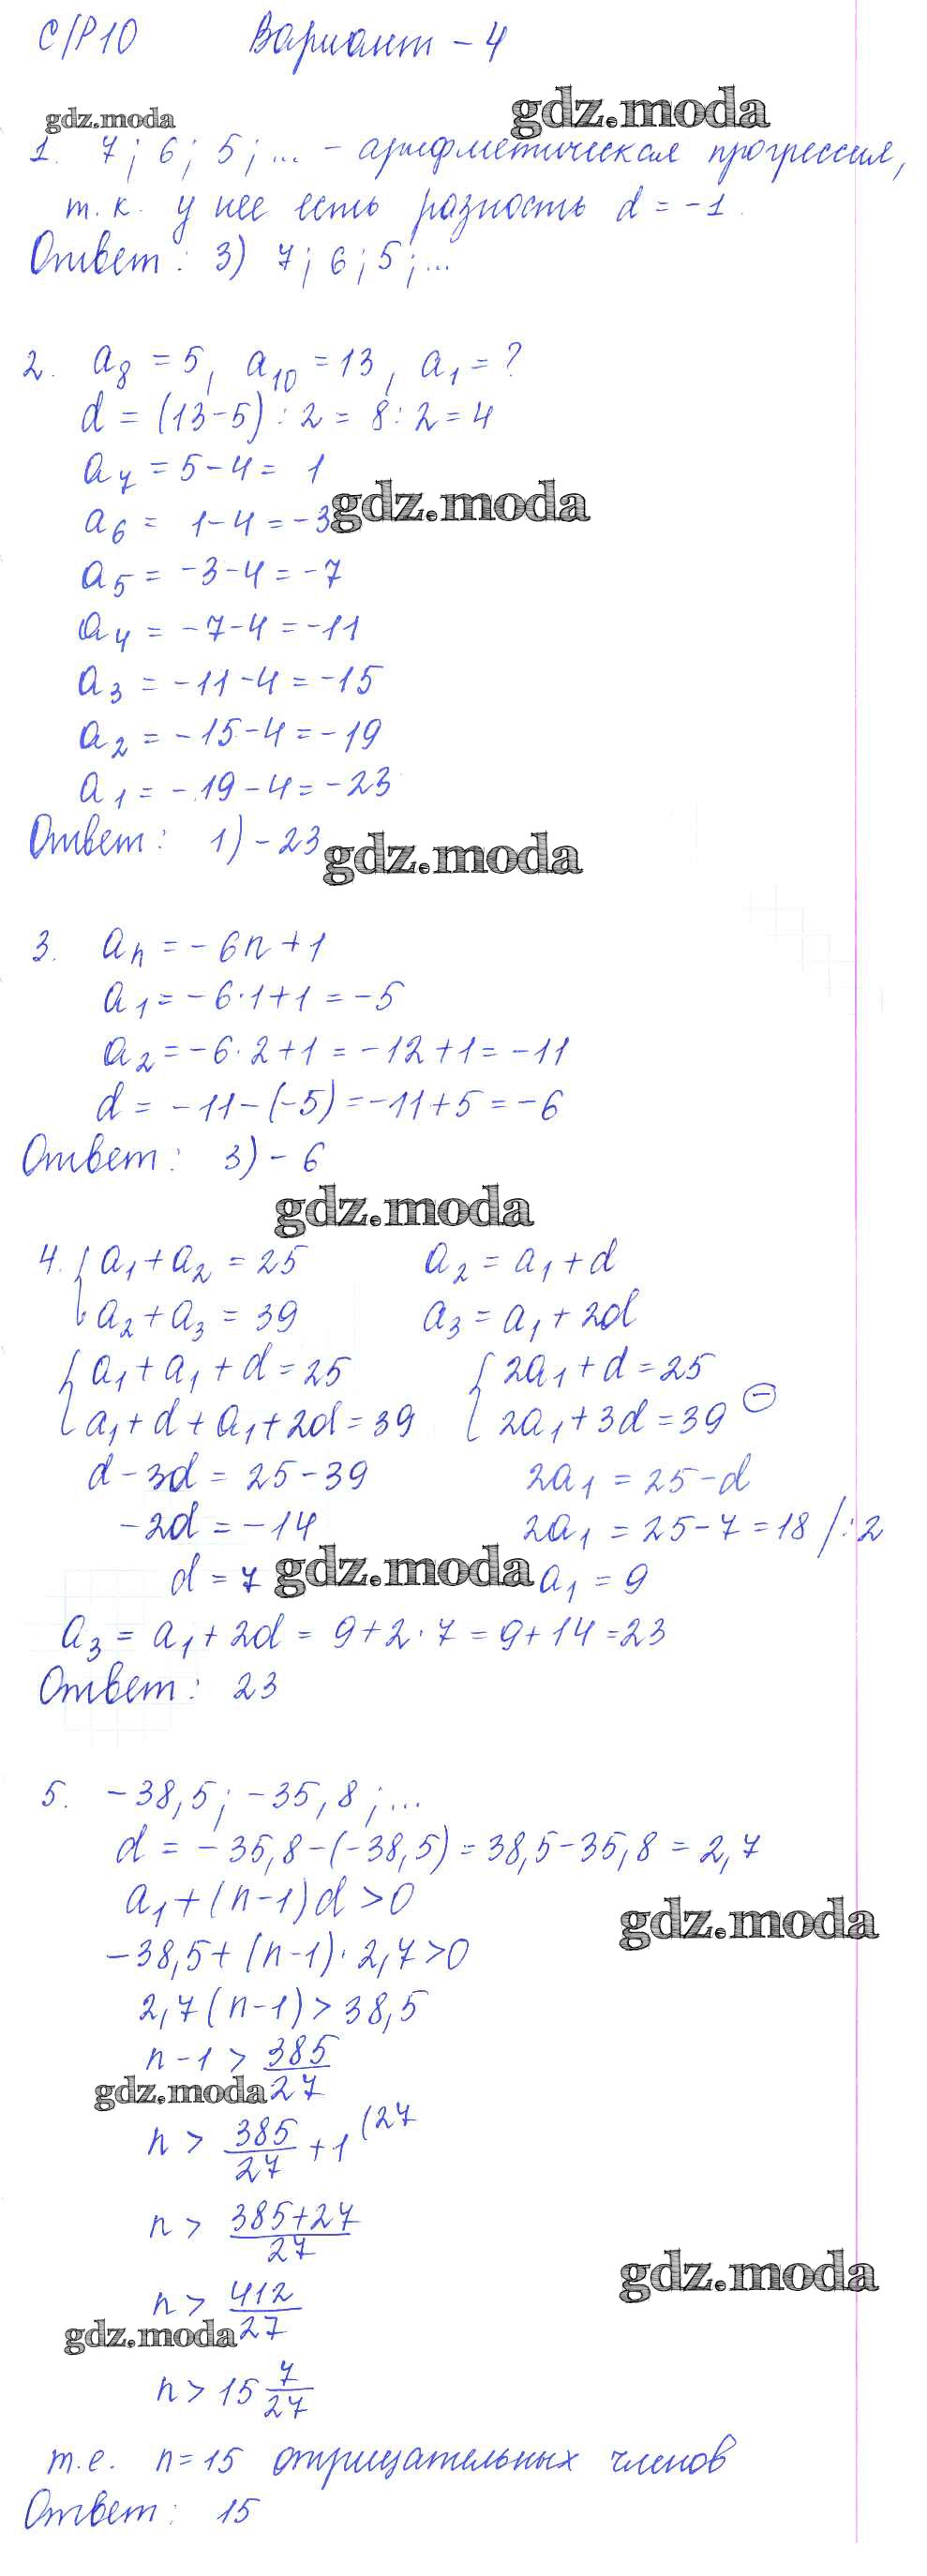 С/Р10 Вариант - 4
gdz.moda gdz.moda
1. 7; 6; 5; ... - арифметическая прогрессия,
т.к. у нее есть разность d = -1.
Ответ: 3) 7; 6; 5; ...
2. a₈ = 5, a₁₀ = 13, a₁ = ?
d = (13-5) : 2 = 8 : 2 = 4
a₇ = 5 - 4 = 1
a₆ = 1 - 4 = -3 gdz.moda
a₅ = -3 - 4 = -7
a₄ = -7 - 4 = -11
a₃ = -11 - 4 = -15
a₂ = -15 - 4 = -19
a₁ = -19 - 4 = -23
Ответ: 1) -23 gdz.moda
3. aₙ = -6n + 1
a₁ = -6·1 + 1 = -5
a₂ = -6·2 + 1 = -12 + 1 = -11
d = -11 - (-5) = -11 + 5 = -6
Ответ: 3) -6
gdz.moda
4. { a₁ + a₂ = 25 a₂ = a₁ + d
a₂ + a₃ = 39 a₃ = a₁ + 2d
{ a₁ + a₁ + d = 25 { 2a₁ + d = 25
a₁ + d + a₁ + 2d = 39 2a₁ + 3d = 39 (-)
d - 3d = 25 - 39 2a₁ = 25 - d
-2d = -14 2a₁ = 25 - 7 = 18 /:2
d = 7 gdz.moda a₁ = 9
a₃ = a₁ + 2d = 9 + 2·7 = 9 + 14 = 23
Ответ: 23
5. -38,5; -35,8; ...
d = -35,8 - (-38,5) = 38,5 - 35,8 = 2,7
a₁ + (n-1)d > 0
gdz.moda
-38,5 + (n-1)·2,7 > 0
2,7(n-1) > 38,5
n - 1 > 385/27
gdz.moda
n > 385/27 + 1 (27
n > (385+27)/27
n > 412/27
gdz.moda
gdz.moda
n > 15 7/27
т.е. n = 15 отрицательных членов
Ответ: 15